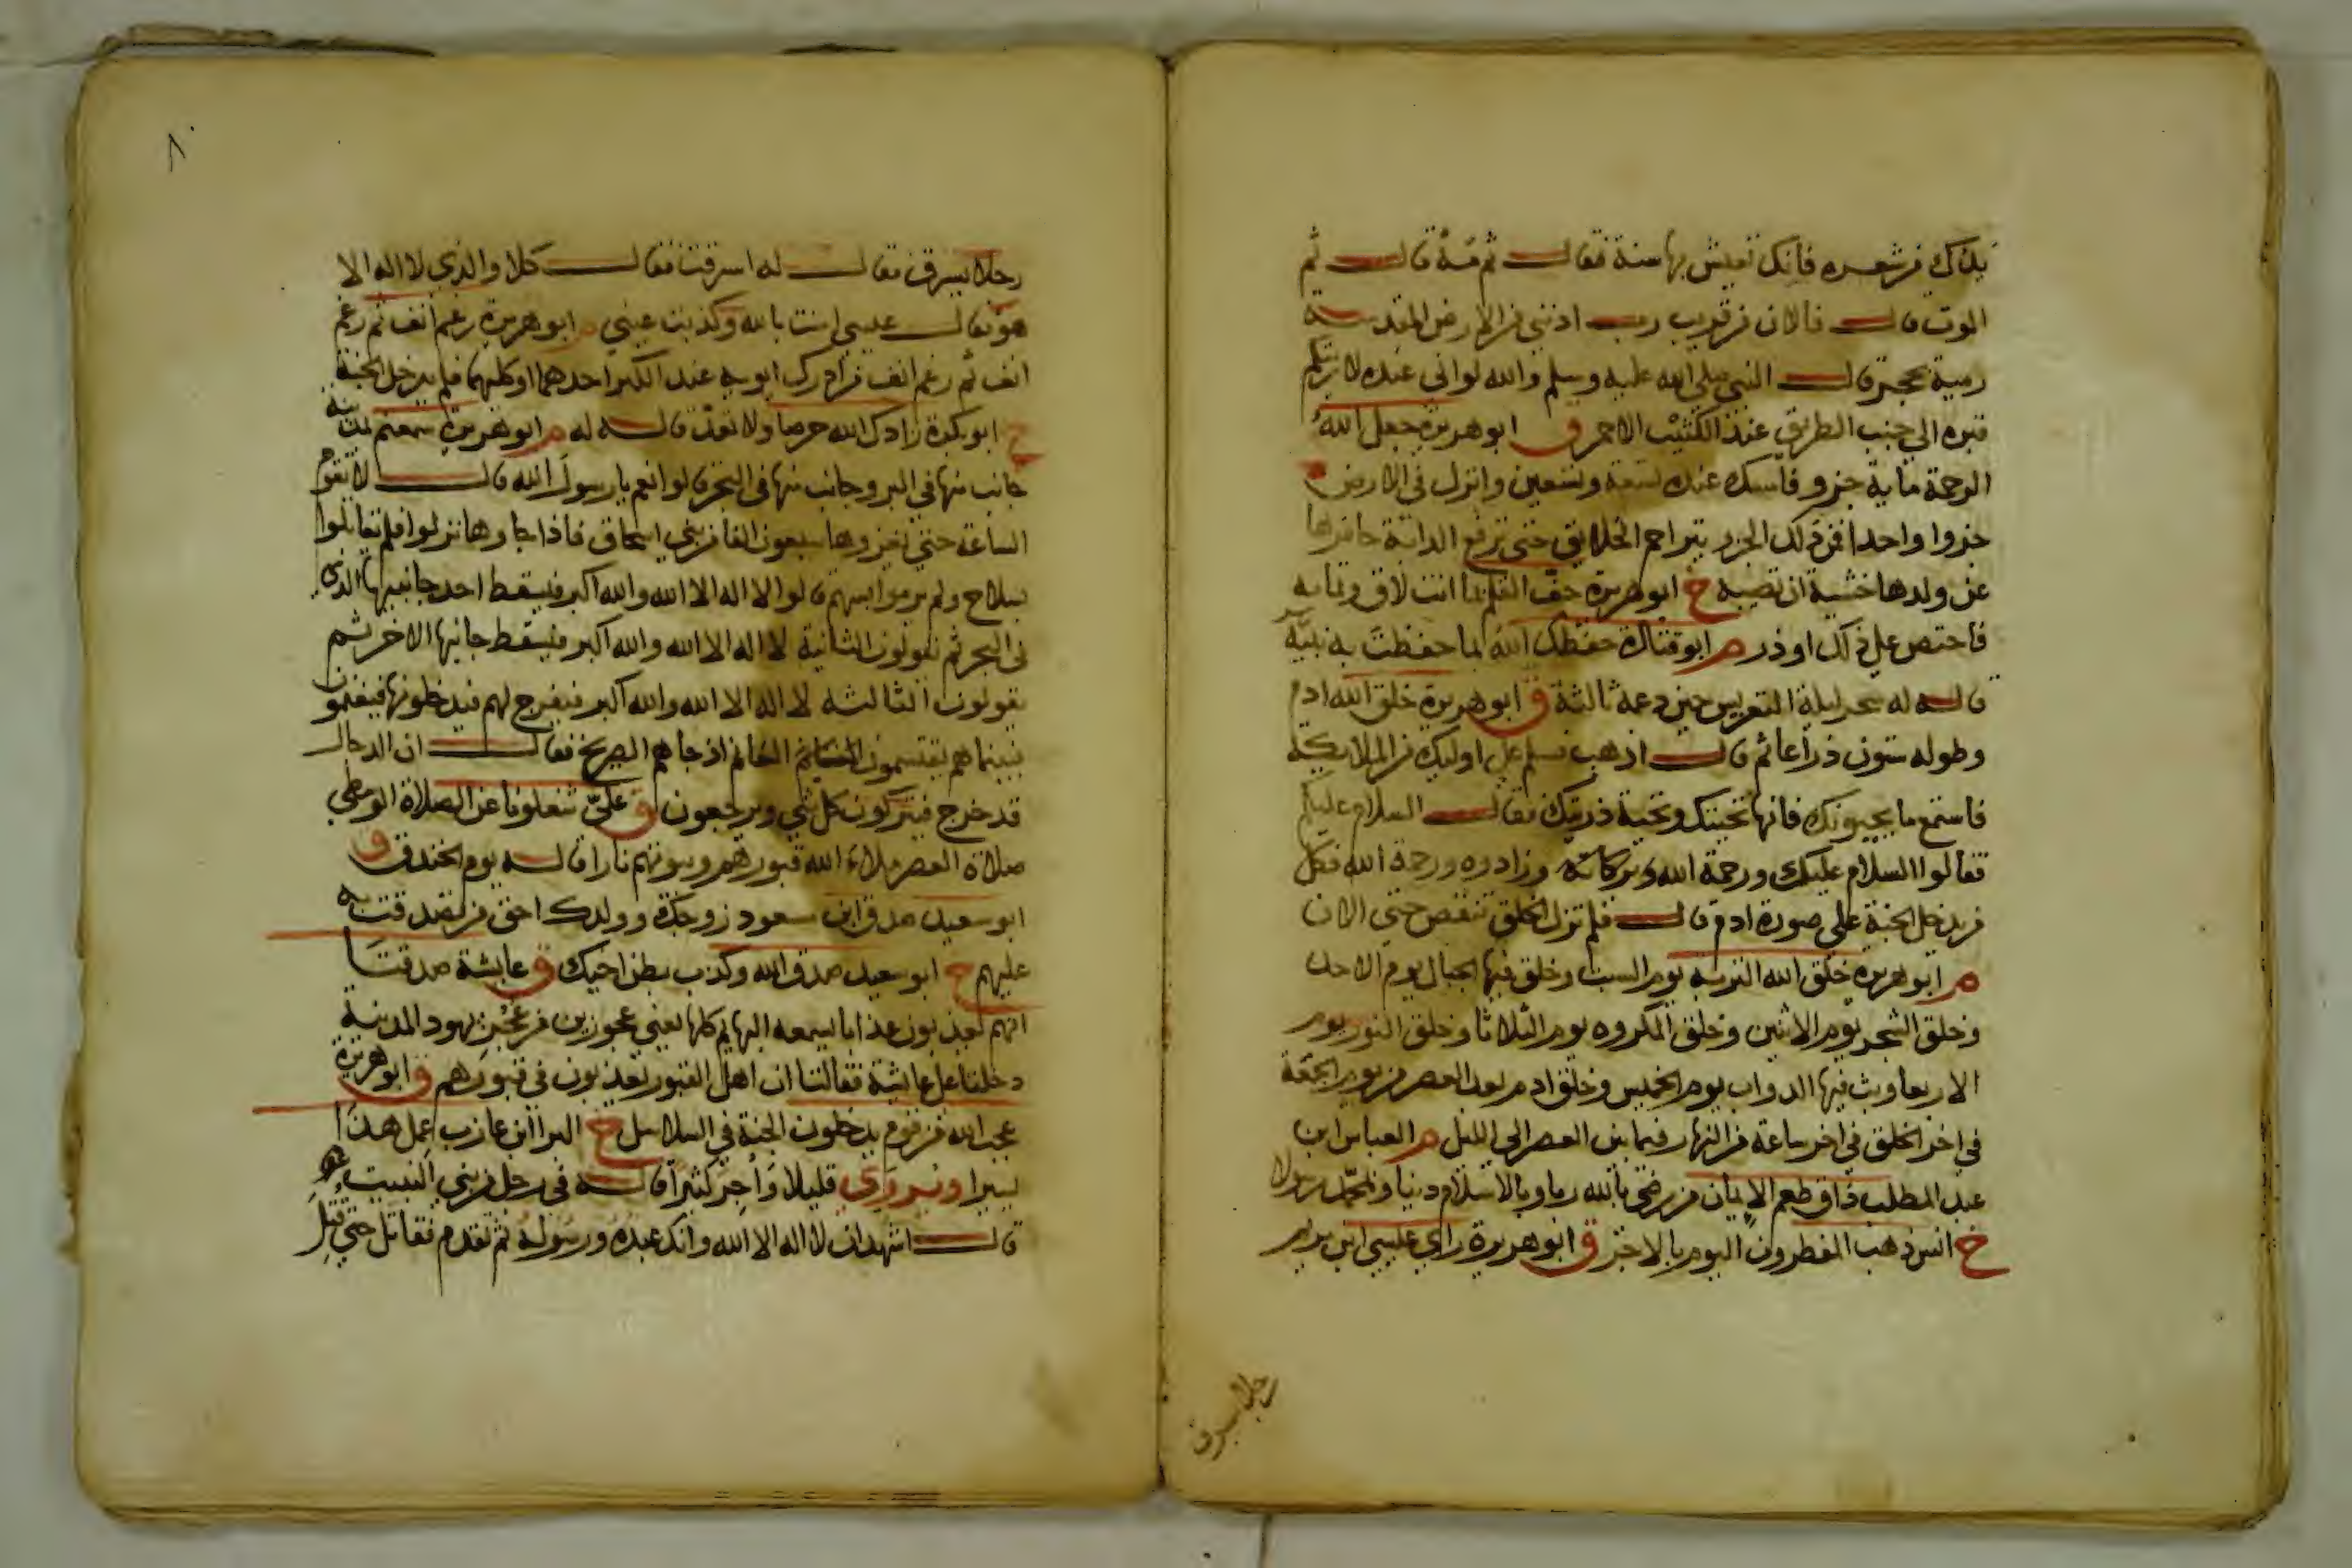 يداك من شعره فانك تعيش بها سنة فقال ثم مه قال ثم
الموت قال فالان من قريب رب ادنني من الارض المقدسة
رمية بحجر قال النبي صلى الله عليه وسلم والله لو اني عنده لاريتكم
قبره الى جنب الطريق عند الكثيب الاحمر ق ابو هريرة جعل الله
الرحمة ماية جزو فامسك عنده تسعة وتسعين وانزل في الارض
جزوا واحدا فمن ذلك الجزو يتراحم الخلايق حتى ترفع الدابة حافرها
عن ولدها خشية ان تصيبه خ ابو هريرة جف القلم بما انت لاق
فاختص على ذلك او ذر م ابو قتادة حفظك الله بما حفظت به نبيه
قاله له سحر ليلة التعريس حين دعمه ثالثة ق ابو هريرة خلق الله ادم
وطوله ستون ذراعا ثم قال اذهب فسلم على اوليك من الملايكة
فاستمع ما يحيونك فانها تحيتك وتحية ذريتك فقال السلام عليكم
فقالوا السلام عليك ورحمة الله وبركاته وزادوه ورحمة الله فكل
من يدخل الجنة على صورة ادم قال فلم تزل الخلق تنقص حتى الان
م ابو هريرة خلق الله التربة يوم السبت وخلق فيها الجبال يوم الاحد
وخلق الشجر يوم الاثنين وخلق المكروه يوم الثلاثا وخلق النور يوم
الاربعا وبث فيها الدواب يوم الخميس وخلق ادم بعد العصر من يوم الجمعة
في اخر الخلق في اخر ساعة من النهار فيما بين العصر الى الليل م العباس ابن
عبد المطلب ذاق طعم الايمان من رضي بالله ربا وبالاسلام دينا وبمحمد رسولا
خ انس ذهب المفطرون اليوم بالاجر ق ابو هريرة راي عيسى ابن مريم
رجلا يسرق
٨
رجلا يسرق فقال له اسرقت فقال كلا والذي لا اله الا
هو فقال عيسى امنت بالله وكذبت عيني م ابو هريرة رغم انف ثم رغم
انف ثم رغم انف من ادرك ابويه عند الكبر احدهما او كليهما فلم يدخل الجنة
خ ابو بكرة زادك الله حرصا ولا تعد قاله له م ابو هريرة سمعتم بمدينة
جانب منها في البر وجانب منها في البحر قالوا نعم يا رسول الله قال لا تقوم
الساعة حتى يغزوها سبعون الفا من بني اسحاق فاذا جاوها نزلوا فلم يقاتلوا
بسلاح ولم يرموا بسهم قالوا لا اله الا الله والله اكبر فيسقط احد جانبيها الذي
في البحر ثم يقولون الثانية لا اله الا الله والله اكبر فيسقط جانبها الاخر ثم
يقولون الثالثه لا اله الا الله والله اكبر فيفرج لهم فيدخلونها فيغنموا
فبينما هم يقتسمون الغنايم اذ جاهم الصريخ فقال ان الدجال
قد خرج فيتركون كل شي ويرجعون ق علي شغلونا عن الصلاة الوسطى
صلاة العصر ملاء الله قبورهم وبيوتهم نارا قاله يوم الخندق ق
ابو سعيد صدق ابن مسعود زوجك وولدك احق من تصدقت به
عليهم خ ابو سعيد صدق الله وكذب بطن اخيك ق عايشة صدقتا
انهم يعذبون عذابا يسمعه البهايم كلها يعني عجوزين من عجز يهود المدينة
دخلتا على عايشة فقالتا ان اهل القبور يعذبون في قبورهم ق ابو هريرة
عجب الله من قوم يدخلون الجنة في السلاسل خ البرا ابن عازب عمل هذا
يسيرا ويروي قليلا واجر كثيرا قاله في رجل من بني النبيت
قال اشهد ان لا اله الا الله وانك عبده ورسوله ثم تقدم فقاتل حتى قتل